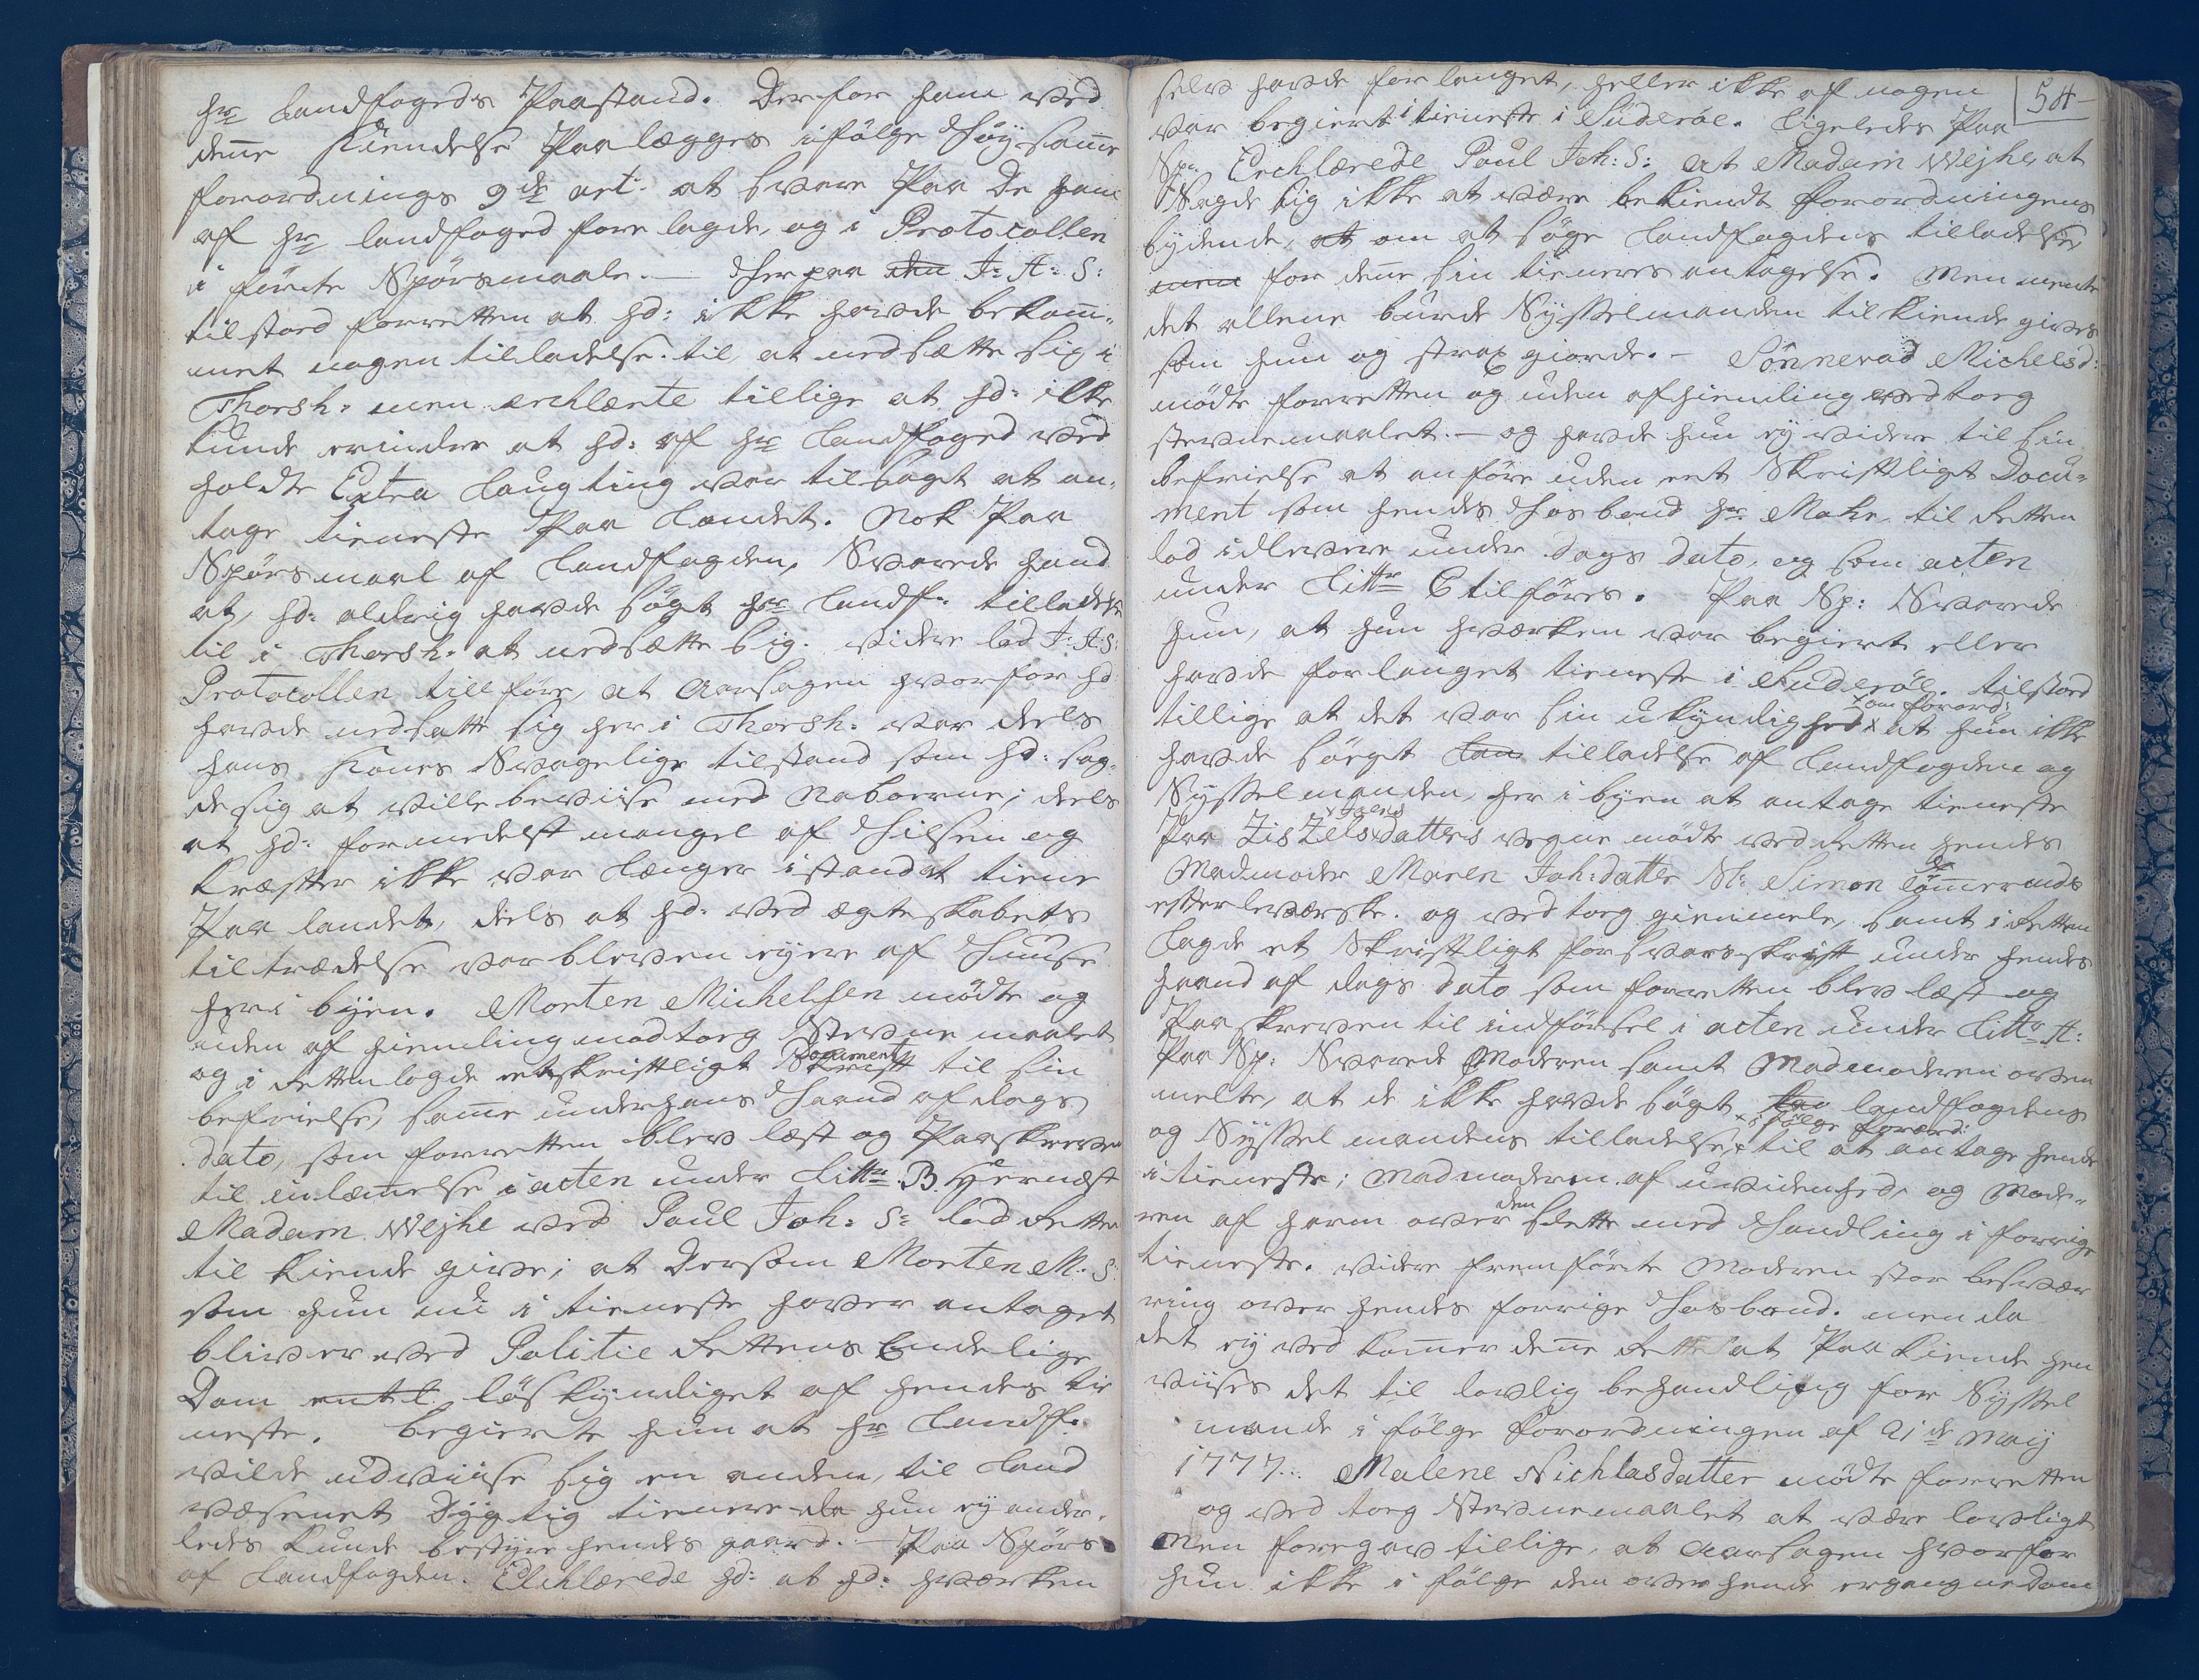 hr Landfogeds Paastand. Derfor ham ved
denne Kiendelse Paalægges ifølge Høysamme
forordnings 9de art. at svare Paa De ham
af hr landfoged forelagde, og i Protocollen
i førte Spørsmaale. — Herpaa den J: H: S:
tilstoed forretten at hd: ikke havde bekom-
met nogen tilladelse til, at nedsætte sig i
Thorsh: men erklærte tillige at hd: ikke
kunde erindre at hd: af hr Landfoged ved
holdte Extra Laugting var tilsagt at an-
tage tieneste Paa Landet. Nok Paa
Spørsmaal af Landfogden, Svarede hand
at, hd: aldrig havde søgt hr Landf: tilladelse
til i Thorsh: at nedsætte sig. videre lod J: H: S:
Protocollen tillføre, at Aarsagen hvorfor hd
havde nedsatte sig her i Thorsh: var deels
hans Kones Svagelige tilstand som hd: sag-
de sig at ville beviise med Naboerne; deels
at hd: formedelst mangel af Hilsen og
kræfter ikke var længer istand at tiene
Paa landet, deels at hd: ved ægteskabets
tiltrædelse var bleven eyere af Huuse
her i byen. Morten Michelsen mødte og
uden af hiemling modtog Stevnemaalet
og i Retten lagde et skriftligt Skrift Document til sin
befrielse, samme under hans Haand af dags
dato, som forretten blev læst og Paaskreven
til indlemmelse i acten under Littr. B. Hernæst
Madam Wejhe ved Poul Joh: S: lod Retten
til kiende give; at Dersom Morten M: S:
som hun nu i tieneste haver antaget
bliver ved Politie Rettens Endelige
Dom entl. løskyndiget af hendes tie
neste. begierte hun at hr Landf:
vilde udviise sig en anden, til Land
væsenet Dygtig tienere da hun ey ander-
ledes kunde bestyre hendes gaard. — Paa Spørs
af Landfogden. Erklærede hd: at hd: hværken
54
selv havde forlanget, heller ikke af nogen
var begiert i tieneste i Süderøe. Ligeledes Paa
Sp: Erclærede Poul Joh: S: at Madam Wejhe at
Sagde sig ikke at være bekiendt forordningens
bydende, at om at søge Landfogdens tilladelse
men for denne sin tieneres antagelse. Men mente
det allene burde Sysselmanden tilkiende gives
som hun og strax giorde. — Sønnevad Michelsd:
mødte forretten og uden afhiemling vedtog
stevnemaalet. — og havde hun ey videre til sin
befrielse at anføre uden eet Skriftligt Docu-
ment som hendes Hosbond hr. Mohr, til Retten
lod idlevere under Dags dato, og som acten
under Littr C tilføres. Paa Sp: Svarede
hun, at hun hværken var begiert eller
havde forlanget tieneste i Suderøe. tilstoed
tillige at det var sin ukyndighed x om forord: x at hun ikke
havde søgt Lan tilladelse af Landfogden og
Sysselmanden, her i byen at antage tieneste
Paa Zis Zels datters vegne mødte ved Retten hendes
Madmoder Maren Joh:datter Sl: Simon
efterleverske. og vedtog giennmele, samt i Retten
lagde et Skriftligt forsvarsskrift under hendes
haand af dags dato som forretten blev læst og
Paaskreven til indførsel i acten under Littr. A:
Paa Sp: Svarede Moderen samt Madmoderen oven
melte, at de ikke havde søgt landfogdens
og Sysselmandens tilladelse, x i følge forord: x til at antage hende
i tieneste; Madmoderen af uvidenhed, og Mode-
ren af harm over den slette med Handling i forrige
tieneste. videre fremførte Moderen stor besvæ-
ring over hendes forrige Hosbond. men da
det ey ved kommer denne Rett at Paa kiende hen
viises det til lovlig behandling for Syssel
mande i følge forordningen af 21de Maij
1777. Malene Nichlasdatter mødte forretten
og ved tog Stevnemaalet at være lovligt
Men foregav tillige, at Aarsagen hvorfor
hun ikke i følge den over hende ergangne Dom